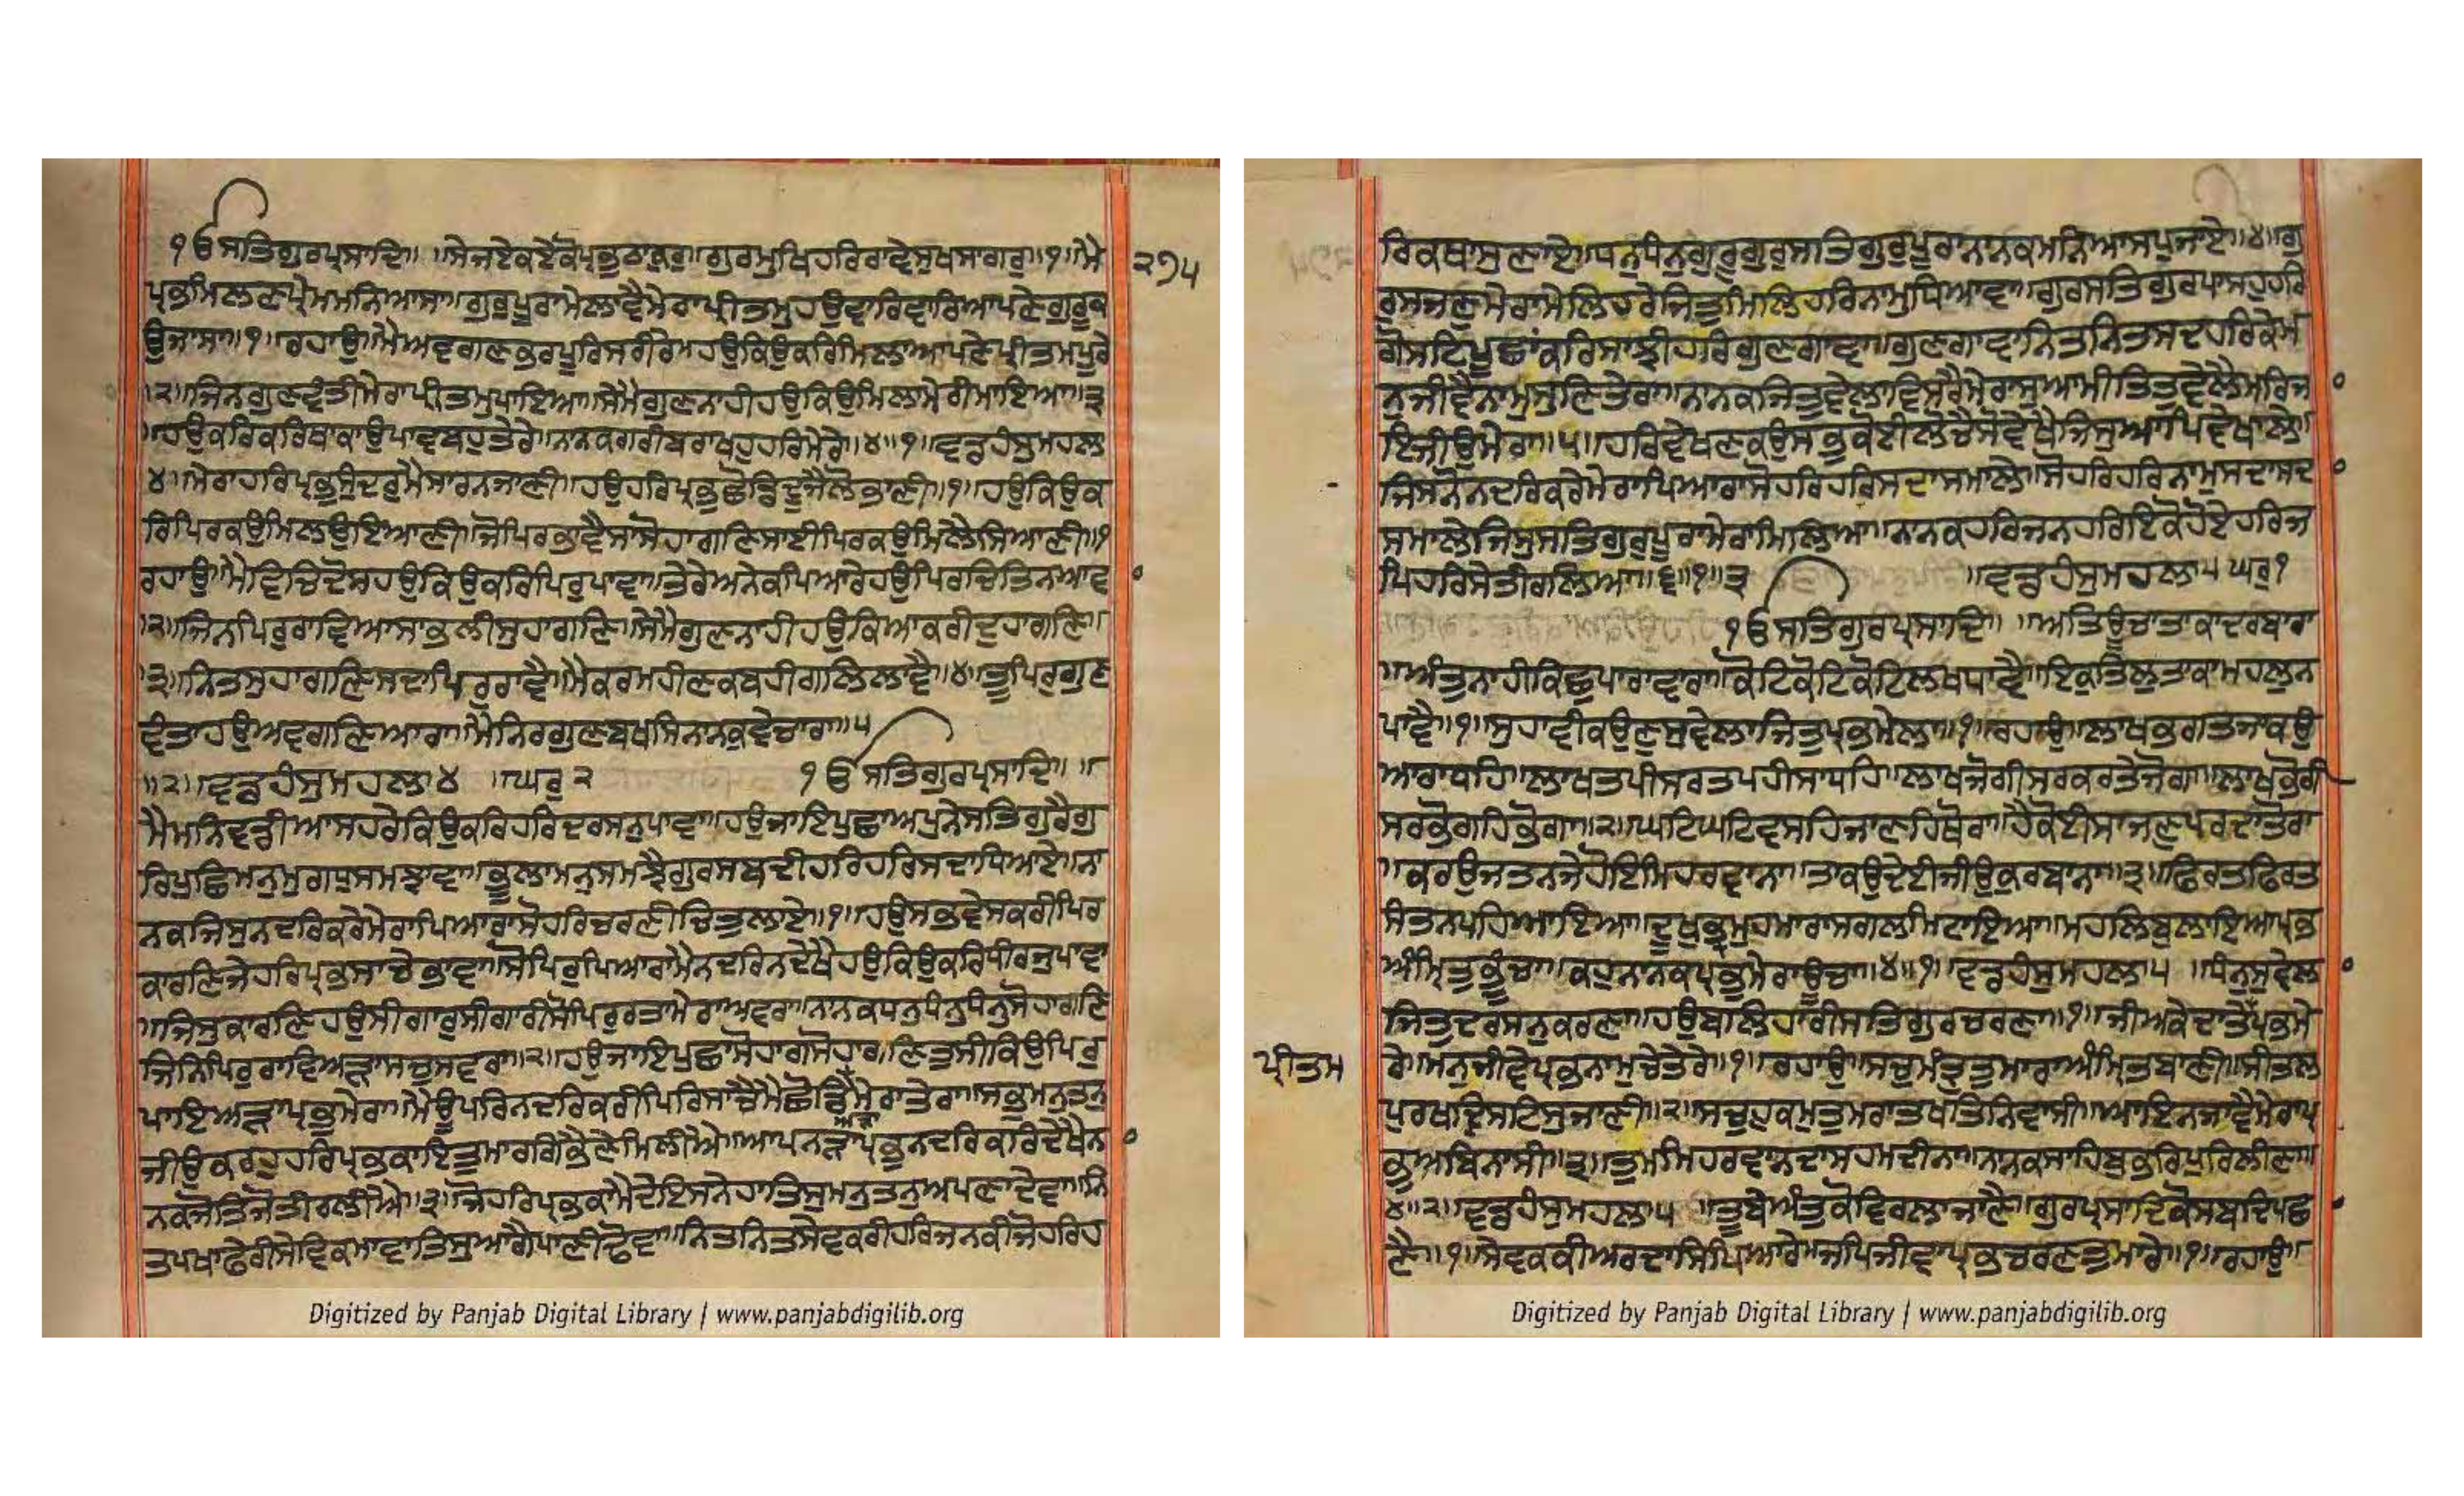 ੧ੳ ਸਤਿਗੁਰਪ੍ਰਸਾਦਿ॥ ॥ਸੇਜਏਕਏਕੋਪ੍ਰਭੁਠਾਕੁਰੁ॥ਗੁਰਮੁਖਿਹਰਿਰਾਵੇਸੁਖਸਾਗਰੁ॥੧॥ਮੈ
੨੭੫
ਪ੍ਰਭਮਿਲਣਪ੍ਰੇਮਮਨਿਆਸਾ॥ਗੁਰੁਪੂਰਾਮੇਲਾਵੈਮੇਰਾਪ੍ਰੀਤਮੁਹਉਵਾਰਿਵਾਰਿਆਪਣੇਗੁਰੂਕ
ਉਜਾਸਾ॥੧॥ਰਹਾਉ॥ਮੈਅਵਗਣਭਰਪੂਰਿਸਰੀਰੇਹਉਕਿਉਕਰਿਮਿਲਾਆਪਣੇਪ੍ਰੀਤਮਪੂਰੇ
॥੨॥ਜਿਨਗੁਣਵੰਤੀਮੇਰਾਪ੍ਰੀਤਮੁਪਾਇਆ॥ਸੇਮੈਗੁਣਨਾਹੀਹਉਕਿਉਮਿਲਾਮੇਰੀਮਾਇਆ॥੩
॥ਹਉਕਰਿਕਰਿਥਾਕਾਉਪਾਵਬਹੁਤੇਰੇ॥ਨਾਨਕਗਰੀਬਰਾਖਹੁਹਰਿਮੇਰੇ॥੪॥੧॥ਵਡਹੰਸੁਮਹਲਾ
੪॥ਮੇਰਾਹਰਿਪ੍ਰਭੁਸੁੰਦਰੁਮੈਸਾਰਨਜਾਣੀ॥ਹਉਹਰਿਪ੍ਰਭੁਛੋਡਿਦੂਜੈਲੋਭਾਣੀ॥੧॥ਹਉਕਿਉਕ
ਰਿਪਿਰਕਉਮਿਲਉਇਆਣੀ॥ਜੋਪਿਰਭਾਵੈਸਾਸੋਹਾਗਣਿਸਾਈਪਿਰਕਉਮਿਲੈਸਿਆਣੀ॥੧
ਰਹਾਉ॥ਮੈਵਿਚਿਦੋਸਹਉਕਿਉਕਰਿਪਿਰੁਪਾਵਾ॥ਤੇਰੇਅਨੇਕਪਿਆਰੇਹਉਪਿਰਚਿਤਿਨਆਵਾ
॥੨॥ਜਿਨਪਿਰੁਰਾਵਿਆਸਾਭਲੀਸੁਹਾਗਣਿ॥ਸੇਮੈਗੁਣਨਾਹੀਹਉਕਿਆਕਰੀਦੁਹਾਗਣਿ॥
੩॥ਨਿਤਸੁਹਾਗਣਿਸਦਾਪਿਰੁਰਾਵੈ॥ਮੈਕਰਮਹੀਣਕਬਹੀਗਲਿਲਾਵੈ॥੪॥ਤੂਪਿਰੁਗੁਣ
ਵੰਤਾਹਉਅਵਗਣਿਆਰਾ॥ਮੈਨਿਰਗੁਣਬਖਸਿਨਾਨਕੁਵੇਚਾਰਾ॥੫
॥੨॥ਵਡਹੰਸੁਮਹਲਾ੪ ॥ਘਰੁ੨ ੧ੳ ਸਤਿਗੁਰਪ੍ਰਸਾਦਿ॥ ॥
ਮੈਮਨਿਵਡੀਆਸਹਰੇਕਿਉਕਰਿਹਰਿਦਰਸਨੁਪਾਵਾ॥ਹਉਜਾਇਪੁਛਾਅਪੁਨੇਸਤਿਗੁਰੈਗੁ
ਰਿਪੁਛਿਮਨੁਮੁਗਧੁਸਮਝਾਵਾ॥ਭੂਲਾਮਨੁਸਮਝੈਗੁਰਸਬਦੀਹਰਿਹਰਿਸਦਾਧਿਆਏ॥ਨਾ
ਨਕਜਿਸੁਨਦਰਿਕਰੇਮੇਰਾਪਿਆਰਾਸੋਹਰਿਚਰਣੀਚਿਤੁਲਾਏ॥੧॥ਹਉਸਭਵੇਸਕਰੀਪਿਰ
ਕਾਰਣਿਜੇਹਰਿਪ੍ਰਭਸਾਚੇਭਾਵਾ॥ਸੋਪਿਰੁਪਿਆਰਾਮੈਨਦਰਿਨਦੇਖੈਹਉਕਿਉਕਰਿਧੀਰਜੁਪਾਵਾ
॥ਜਿਸੁਕਾਰਣਿਹਉਸੀਗਾਰੁਸੀਗਾਰੀਸੋਪਿਰੁਰਤਾਮੇਰਾਅਵਰਾ॥ਨਾਨਕਧਨੁਧਨੁਧਨੁਸੋਹਾਗਣਿ
ਜਿਨਿਪਿਰੁਰਾਵਿਅੜਾਸਚੁਸਵਰਾ॥੨॥ਹਉਜਾਇਪੁਛਾਸੋਹਾਗਸੋਹਾਗਣਿਤੁਸੀਕਿਉਪਿਰੁ
ਪਾਇਅੜਾਪ੍ਰਭੁਮੇਰਾ॥ਮੈਊਪਰਿਨਦਰਿਕਰੀਪਿਰਿਸਾਚੈਮੈਛੋਡਿਅੜਾਮੇਰਾਤੇਰਾ॥ਸਭੁਮਨੁਤਨੁ
ਜੀਉਕਰਹੁਹਰਿਪ੍ਰਭਕਾਇਤੁਮਾਰਗਿਭੈਣੇਮਿਲੀਐ॥ਆਪਨੜਾਪ੍ਰਭੁਨਦਰਿਕਰਿਦੇਖੈਨਾ
ਨਕਜੋਤਿਜੋਤੀਰਲੀਐ॥੩॥ਜੋਹਰਿਪ੍ਰਭਕਾਮੈਦੇਇਸਨੇਹਾਤਿਸੁਮਨੁਤਨੁਅਪਣਾਦੇਵਾ॥ਨਿ
ਤਪਖਾਫੇਰੀਸੇਵਕਮਾਵਾਤਿਸੁਆਗੈਪਾਣੀਢੋਵਾ॥ਨਿਤਨਿਤਸੇਵਕਰੀਹਰਿਜਨਕੀਜੋਹਰਿਹ
Digitized by Panjab Digital Library | www.panjabdigilib.org
ਰਿਕਥਾਸੁਣਾਏ॥ਧਨੁਧੰਨੁਗੁਰੂਗੁਰੁਸਤਿਗੁਰੁਪੂਰਾਨਾਨਕਮਨਿਆਸਪੁਜਾਏ॥੪॥ਗੁ
ਰੁਸਜਣੁਮੇਰਾਮੇਲਿਹਰੇਜਿਤੁਮਿਲਿਹਰਿਨਾਮੁਧਿਆਵਾ॥ਗੁਰਸਤਿਗੁਰਪਾਸਹੁਹਰਿ
ਗੋਸਟਿਪੂਛਾਂਕਰਿਸਾਂਝੀਹਰਿਗੁਣਗਾਵਾ॥ਗੁਣਗਾਵਾਨਿਤਨਿਤਸਦਹਰਿਕੇਮ
ਨੁਜੀਵੈਨਾਮੁਸੁਣਿਤੇਰਾ॥ਨਾਨਕਜਿਤੁਵੇਲਾਵਿਸਰੈਮੇਰਾਸੁਆਮੀਤਿਤੁਵੇਲੈਮਰਿਜਾ
ਇਜੀਉਮੇਰਾ॥੫॥ਹਰਿਵੇਖਣਕਉਸਭੁਕੋਈਲੋਚੈਸੋਵੇਖੈਜਿਸੁਆਪਿਵੇਖਾਲੇ॥
ਜਿਸਨੋਨਦਰਿਕਰੇਮੇਰਾਪਿਆਰਾਸੋਹਰਿਹਰਿਸਦਾਸਮਾਲੇ॥ਸੋਹਰਿਹਰਿਨਾਮੁਸਦਾਸਦਾ
ਸਮਾਲੇਜਿਸੁਸਤਿਗੁਰੁਪੂਰਾਮੇਰਾਮਿਲਿਆ॥ਨਾਨਕਹਰਿਜਨਹਰਿਇਕੋਹੋਏਹਰਿਜ
ਪਿਹਰਿਸੇਤੀਰਲਿਆ॥੬॥੧॥੩ ॥ਵਡਹੰਸੁਮਹਲਾ੫ਘਰੁ੧
੧ੳ ਸਤਿਗੁਰਪ੍ਰਸਾਦਿ॥ ॥ਅਤਿਊਚਾਤਾਕਾਦਰਬਾਰਾ
॥ਅੰਤੁਨਾਹੀਕਿਛੁਪਾਰਾਵਾਰਾ॥ਕੋਟਿਕੋਟਿਕੋਟਿਲਖਧਾਵੈ॥ਇਕੁਤਿਲੁਤਾਕਾਮਹਲੁਨ
ਪਾਵੈ॥੧॥ਸੁਹਾਵੀਕਉਣੁਸੁਵੇਲਾਜਿਤੁਪ੍ਰਭਮੇਲਾ॥੧॥ਰਹਾਉ॥ਲਾਖਭਗਤਜਾਕਉ
ਆਰਾਧਹਿ॥ਲਾਖਤਪੀਸਰਤਪਹੀਸਾਧਹਿ॥ਲਾਖਜੋਗੀਸਰਕਰਤੇਜੋਗਾ॥ਲਾਖਭੋਗੀ
ਸਰਭੋਗਹਿਭੋਗਾ॥੨॥ਘਟਿਘਟਿਵਸਹਿਜਾਣਹਿਥੋਰਾ॥ਹੈਕੋਈਸਾਜਣੁਪਰਦਾਤੋਰਾ
॥ਕਰਉਜਤਨਜੇਹੋਇਮਿਹਰਵਾਨਾ॥ਤਾਕਉਦੇਈਜੀਉਕੁਰਬਾਨਾ॥੩॥ਫਿਰਤਫਿਰਤ
ਸੰਤਨਪਹਿਆਇਆ॥ਦੂਖੁਭ੍ਰਮੁਹਮਾਰਾਸਗਲਮਿਟਾਇਆ॥ਮਹਲਿਬੁਲਾਇਆਪ੍ਰਭ
ਅੰਮ੍ਰਿਤੁਭੂੰਚਾ॥ਕਹੁਨਾਨਕਪ੍ਰਭੁਮੇਰਾਊਚਾ॥੪॥੧॥ਵਡਹੰਸੁਮਹਲਾ੫ ॥ਧਨੁਸੁਵੇਲਾ
ਜਿਤੁਦਰਸਨੁਕਰਣਾ॥ਹਉਬਲਿਹਾਰੀਸਤਿਗੁਰਚਰਣਾ॥੧॥ਜੀਅਕੇਦਾਤੇਪ੍ਰਭਮੇ
ਪ੍ਰੀਤਮ
ਰੇ॥ਮਨੁਜੀਵੈਪ੍ਰਭਨਾਮੁਚੇਤੇਰੇ॥੧॥ਰਹਾਉ॥ਸਚੁਮੰਤ੍ਰੁਤੁਮਾਰਾਅੰਮ੍ਰਿਤਬਾਣੀ॥ਸੀਤਲ
ਪੁਰਖਦ੍ਰਿਸਟਿਸੁਜਾਣੀ॥੨॥ਸਚੁਹੁਕਮੁਤੁਮਾਰਾਤਖਤਿਨਿਵਾਸੀ॥ਆਇਨਜਾਵੈਮੇਰਾਪ੍ਰ
ਭੁਅਬਿਨਾਸੀ॥੩॥ਤੁਮਮਿਹਰਵਾਨਦਾਸਹਮਦੀਨਾ॥ਨਾਨਕਸਾਹਿਬੁਭਰਿਪੁਰਿਲੀਣਾ॥
੪॥੨॥ਵਡਹੰਸੁਮਹਲਾ੫ ॥ਤੂਬੇਅੰਤੁਕੋਵਿਰਲਾਜਾਣੈ॥ਗੁਰਪ੍ਰਸਾਦਿਕੋਸਬਦਿਪਛਾ
ਣੈ॥੧॥ਸੇਵਕਕੀਅਰਦਾਸਿਪਿਆਰੇ॥ਜਪਿਜੀਵਾਪ੍ਰਭਚਰਣਤੁਮਾਰੇ॥੧॥ਰਹਾਉ॥
Digitized by Panjab Digital Library | www.panjabdigilib.org